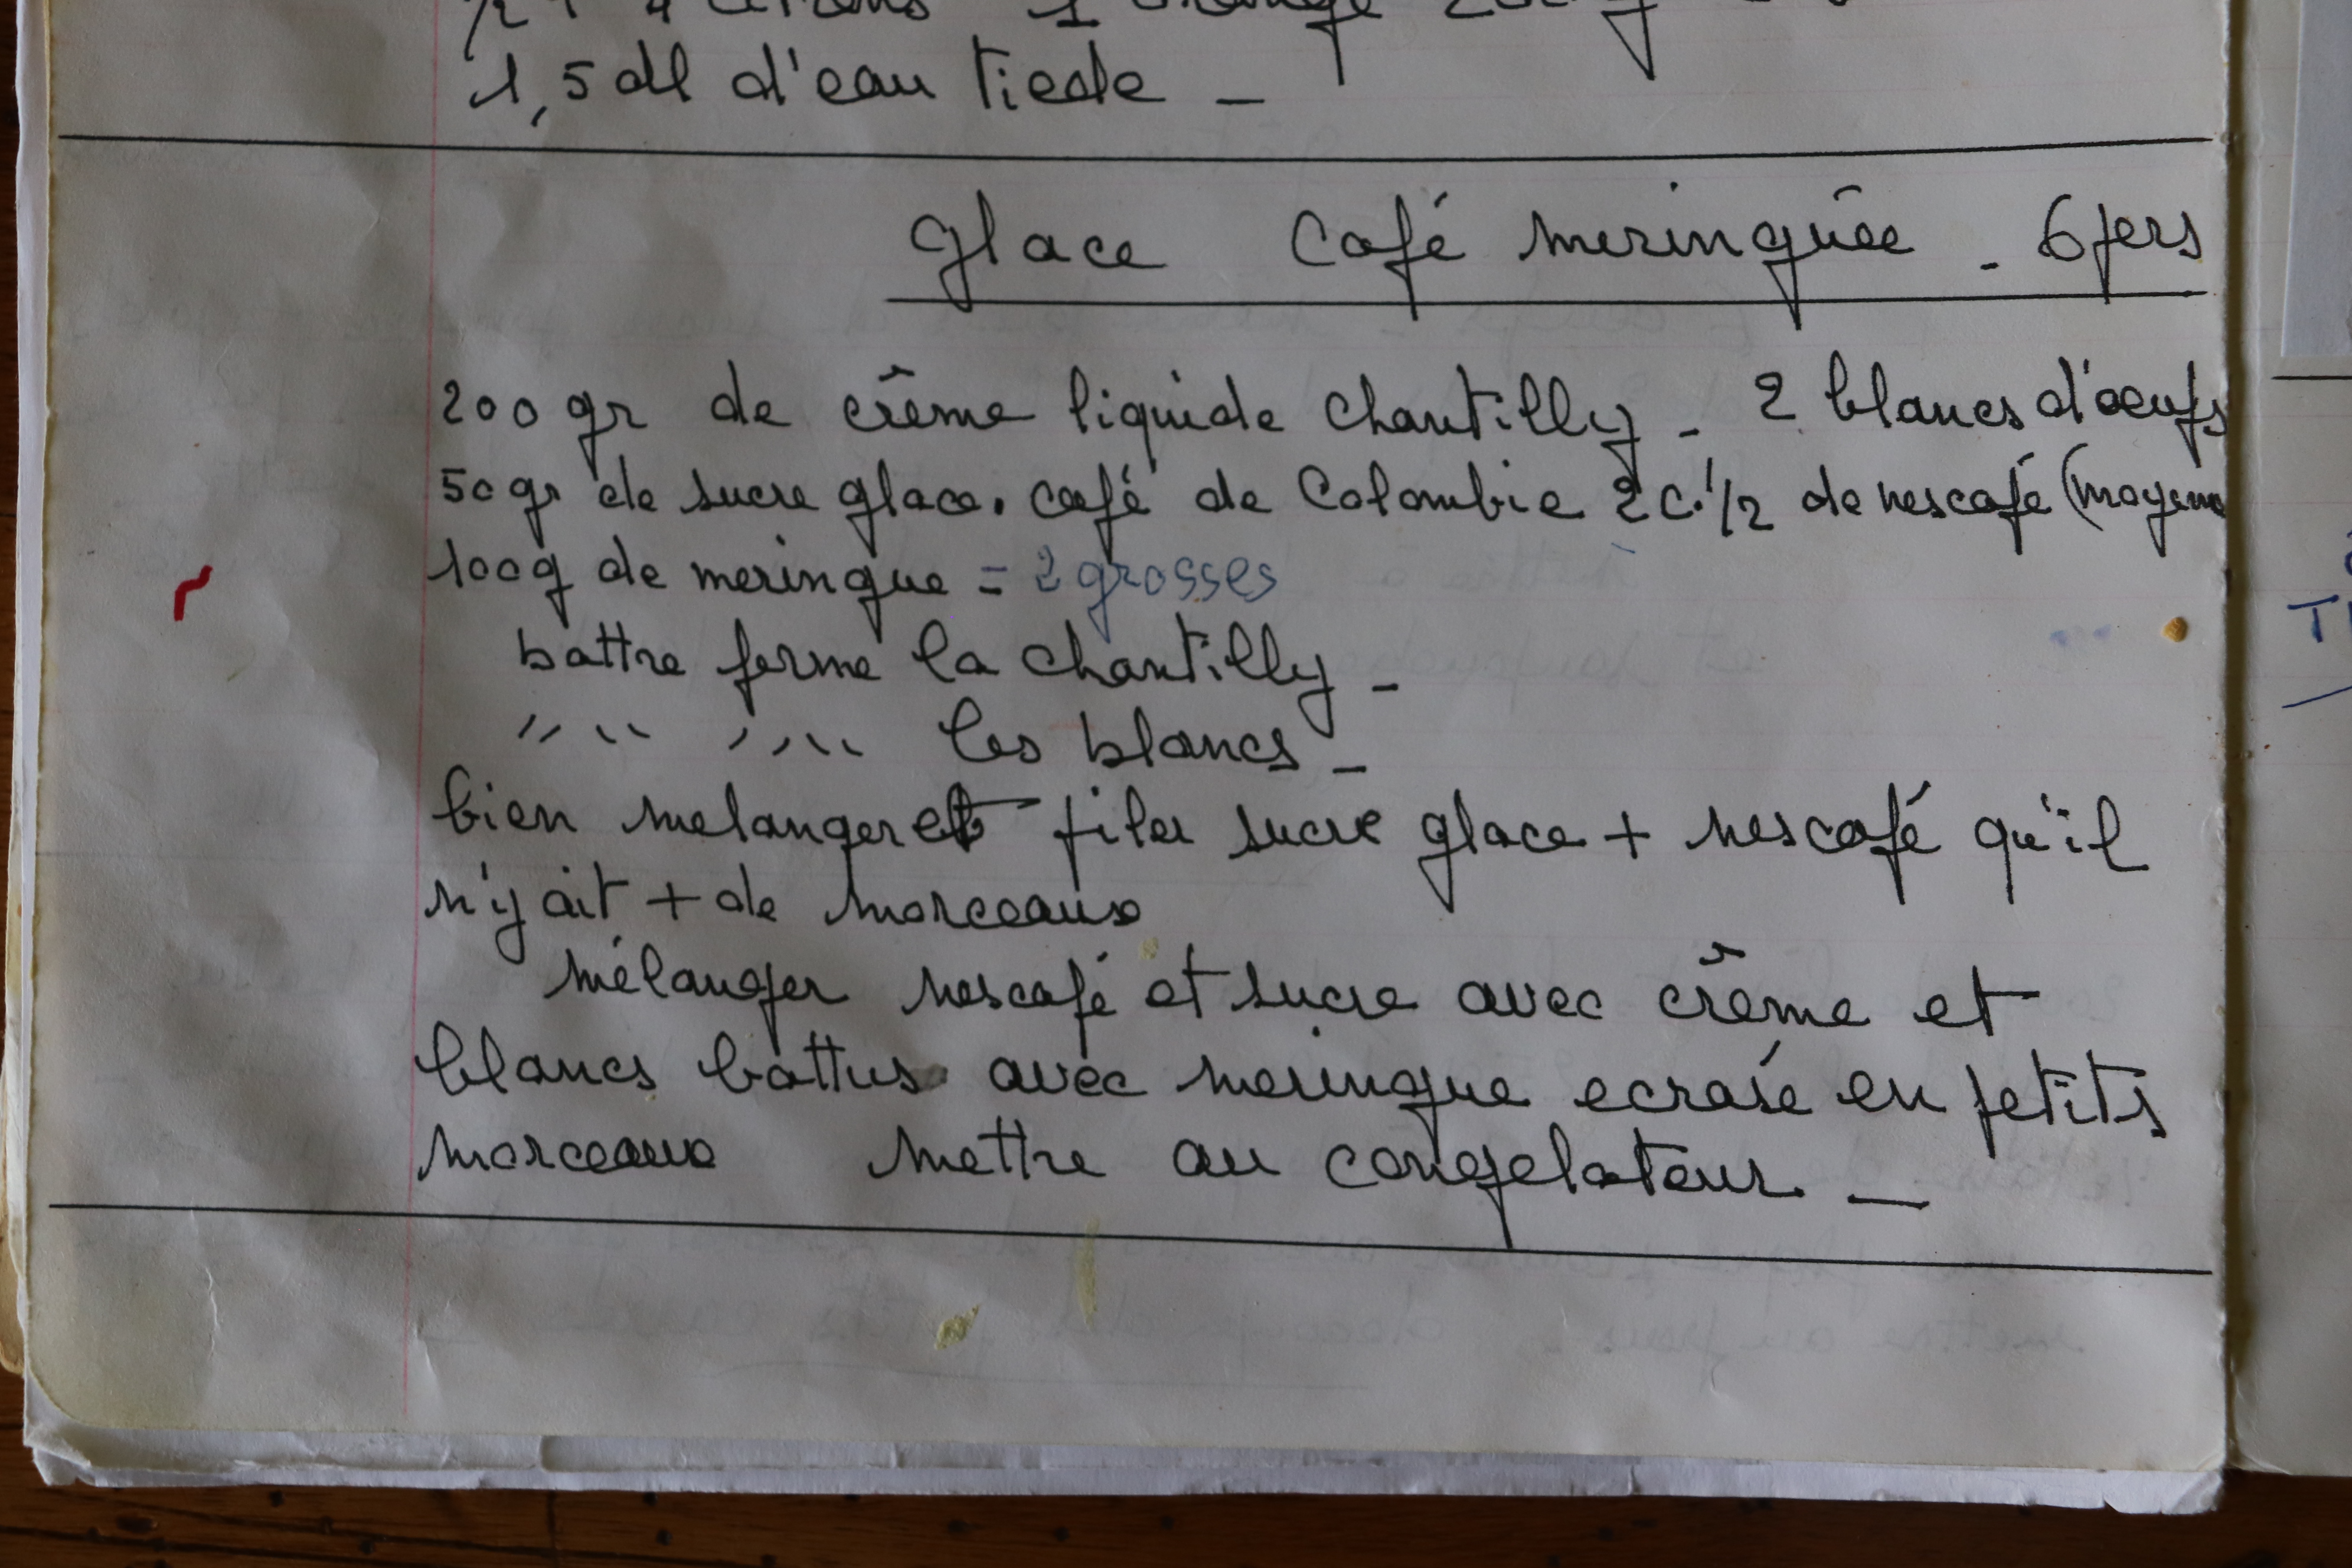 1 orange
1,5 dl d'eau tiede _
Glace Café meringuée - 6 pers
200 gr de crême liquide chantilly - 2 blancs d'oeufs
50 gr de sucre glace. café de Colombie 2 c. 1/2 de nescafé (moyenne
100 g de meringue = 2 grosses
battre ferme la chantilly -
" " " " les blancs -
bien melanger et filer sucre glace + nescafé qu'il
n'y ait + de morceaux
mélanger nescafé et sucre avec crême et
blancs battus avec meringue ecrasé en petits
morceaux mettre au congelateur. _